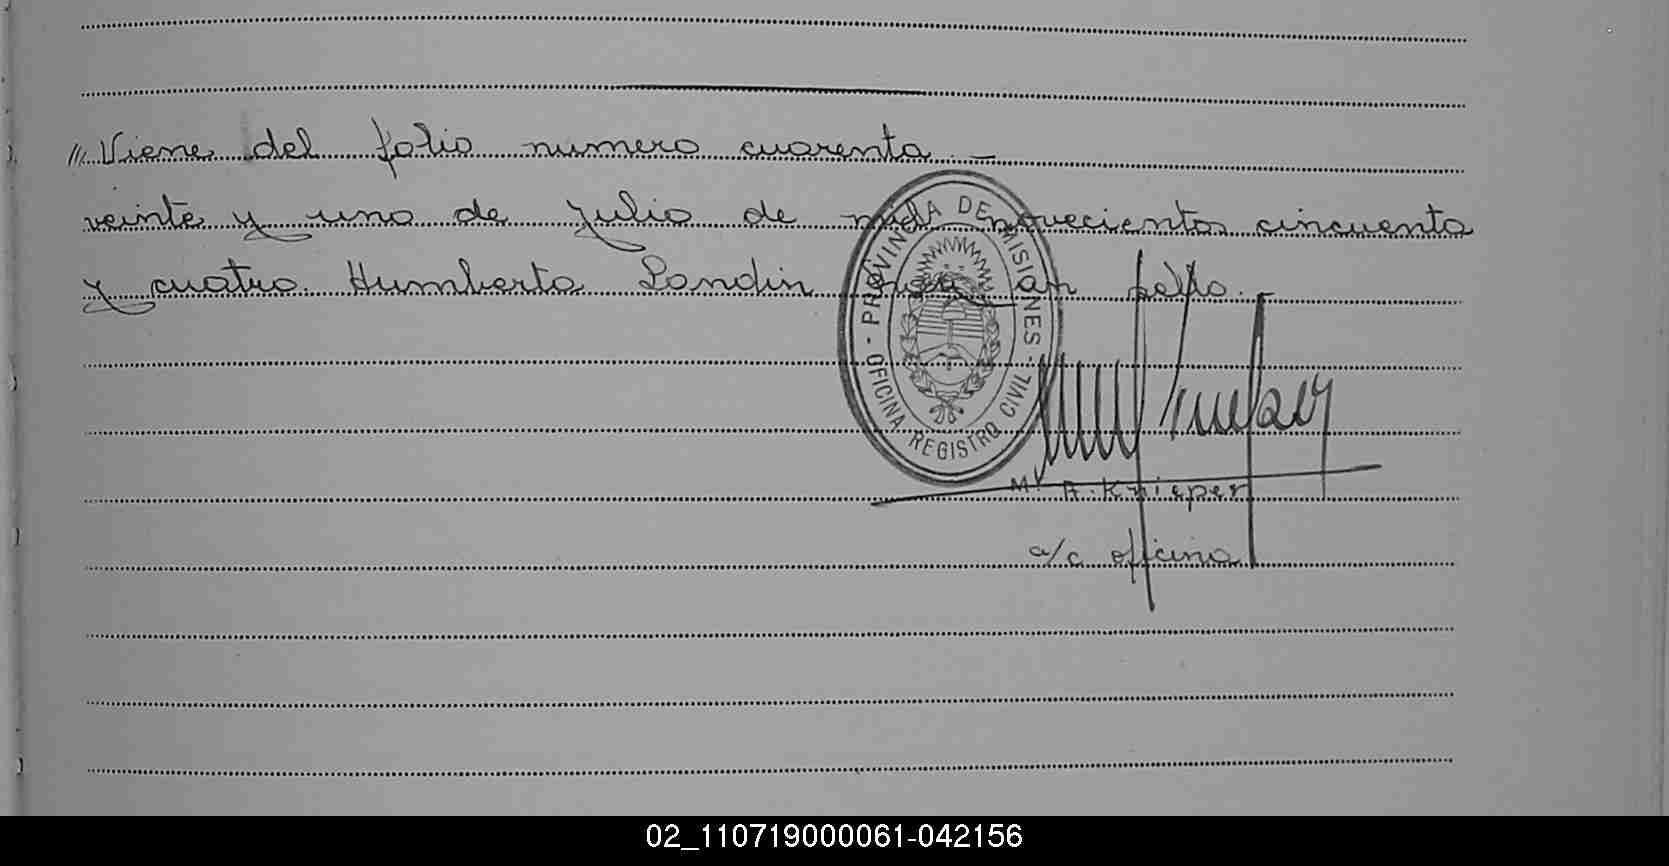 // Viene del folio numero cuarenta -
veinte y uno de Julio de mil novecientos cincuenta
y cuatro. Humberto Landin hay un sello. -
PROVINCIA DE MISIONES
- OFICINA REGISTRO CIVIL -
M. A. Knieper
a/c oficina
02_110719000061-042156